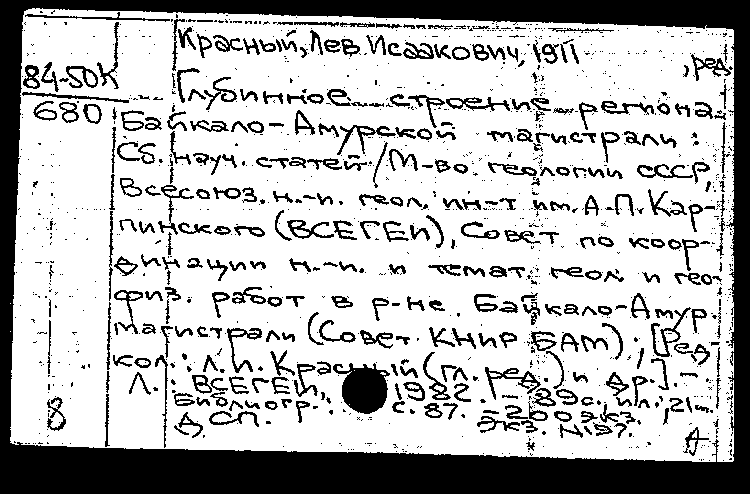 Красный, Лев Исаакович, 1911
, ред
84-50К
Глубинное строение региона
680
Байкало-Амурской магистрали :
Сб. науч. статей / М-во. геологии СССР,
Всесоюз. н.-и. геол. ин-т им. А.П. Кар-
пинского (ВСЕГЕИ), Совет по коор-
динации н.-и. и темат. геол. и гео-
физ. работ в р-не Байкало-Амур.
магистрали (Совет КНИР БАМ) ; [Ред-
кол.: Л.И. Красный (гл. ред.) и др.]. -
Л. : ВСЕГЕИ, 1982. - 89 с., ил.; 21 см.
Библиогр.: с. 87. - 200 экз.
ДСП. Экз. N197.
8